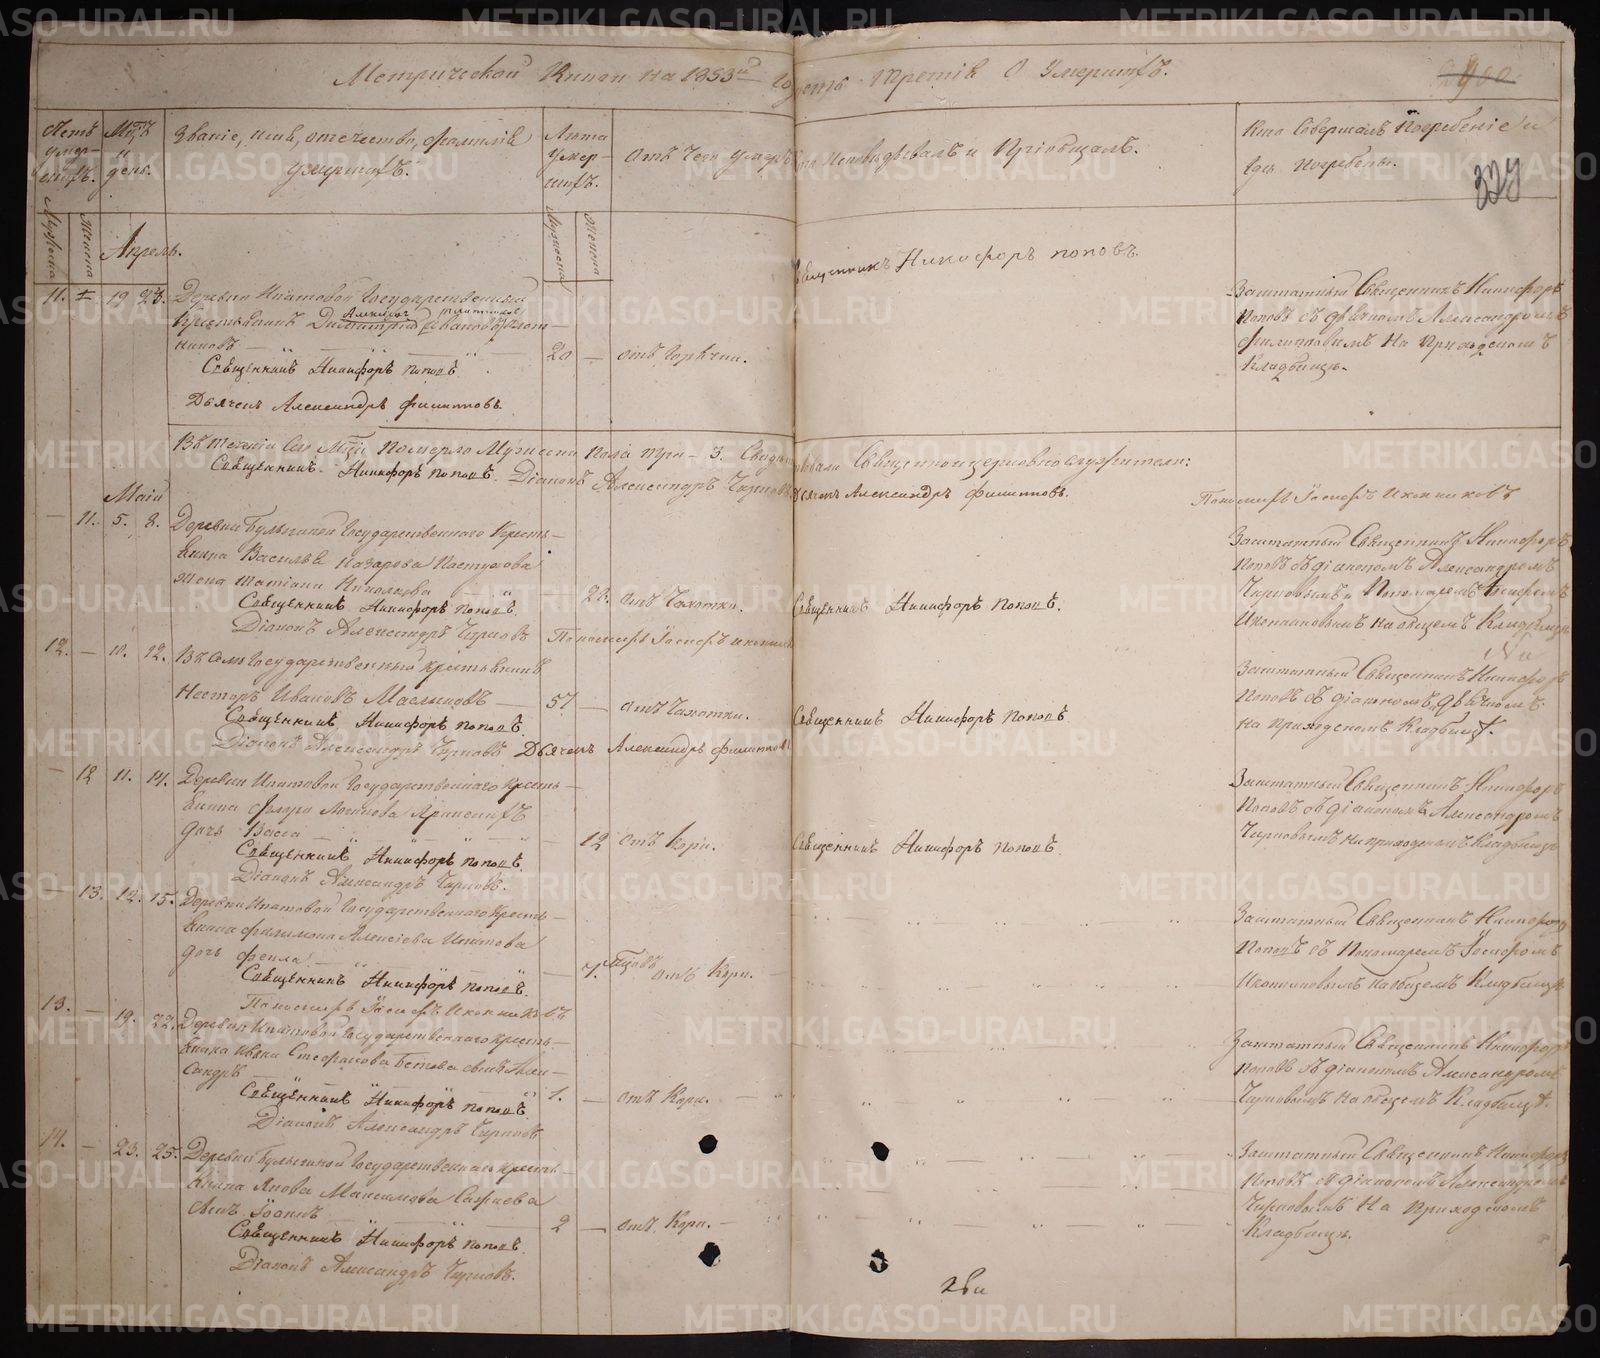 Метрической Книги на 1853й годъ Часть Третія О Умершихъ.
329
Счетъ умер-шихъ.
Мѣсяцъ и день.
Званіе, имя, отечество, фамилія
умершихъ.
Лѣта умер-шихъ.
Отъ чего умеръ
Кто Исповѣдывалъ и Пріобщалъ.
Кто Совершалъ Погребеніе и
гдѣ погребены.
Мужеска
Женска
Апрель.
Мужеска
Женска
Священникъ Никифоръ Поповъ.
11. 19 23. Деревни Ипатовой Государственный
Крестьянинъ Димитрій Ивановъ
20 — отъ Горячки.
Священникъ Никифоръ Поповъ.
Дьячекъ Александръ Филипповъ.
Заштатный Священникъ Никифоръ
Поповъ съ дьячкомъ Александромъ
Филипповымъ На Приходскомъ
Кладбищѣ.
Въ теченіи сего Мѣсяца Померло Мужеска Пола три — 3. Свидѣтельствовали Священноцерковнослужители:
Священникъ Никифоръ Поповъ. Діаконъ Александръ Чирковъ. Дьячекъ Александръ Филипповъ. Пономарь Іосифъ Иконниковъ
Маій
— 11. 5. 8. Деревни Булыгиной Государственнаго Кресть-
янина Василья Назарова Пастухова
жена Татіана Николаева — 23. отъ Чахотки. Священникъ Никифоръ Поповъ.
Священникъ Никифоръ Поповъ.
Діаконъ Александръ Чирковъ Пономарь Іосифъ Иконниковъ
Заштатный Священникъ Никифоръ
Поповъ съ діакономъ Александромъ
Чирковымъ и Пономаремъ Іосифомъ
Иконниковымъ на общемъ Кладбищѣ
12. — 10. 12. Въ селѣ Государственный крестьянинъ
Несторъ Ивановъ Масльковъ — 57 — отъ Чахотки. Священникъ Никифоръ Поповъ.
Священникъ Никифоръ Поповъ.
Діаконъ Александръ Чирковъ Дьячекъ Александръ Филипповъ
Заштатный Священникъ Никифоръ
Поповъ съ діакономъ, дьячкомъ
на приходскомъ Кладбищѣ.
— 12 11. 14. Деревни Ипатовой Государственнаго кресть-
янина
дочь Васса — 12 отъ Кори. Священникъ Никифоръ Поповъ.
Священникъ Никифоръ Поповъ.
Діаконъ Александръ Чирковъ.
Заштатный Священникъ Никифоръ
Поповъ съ діакономъ Александромъ
Чирковымъ на приходскомъ Кладбищѣ
— 13. 12. 15. Деревни Ипатовой Государственнаго кресть-
янина Филимона Алексіева Ипатова
дочь Фекла — 7. отъ Кори.
Священникъ Никифоръ Поповъ.
Пономарь Іосифъ Иконниковъ
Заштатный Священникъ Никифоръ
Поповъ съ Пономаремъ Іосифомъ
Иконниковымъ на общемъ Кладбищѣ
13. — 19. 22. Деревни Ипатовой Государственнаго кресть-
янина Ивана Стефанова сынъ Алек-
сандръ — 1. — отъ Кори.
Священникъ Никифоръ Поповъ.
Діаконъ Александръ Чирковъ
Заштатный Священникъ Никифоръ
Поповъ съ діакономъ Александромъ
Чирковымъ на общемъ Кладбищѣ.
14. — 23. 25. Деревни Булыгиной Государственнаго кресть-
янина Якова Максимова
сынъ Іоаннъ — 2 — отъ Кори.
Священникъ Никифоръ Поповъ.
Діаконъ Александръ Чирковъ.
Заштатный Священникъ Никифоръ
Поповъ съ діакономъ Александромъ
Чирковымъ На Приходскомъ
Кладбищѣ.
METRIKI.GASO-URAL.RU